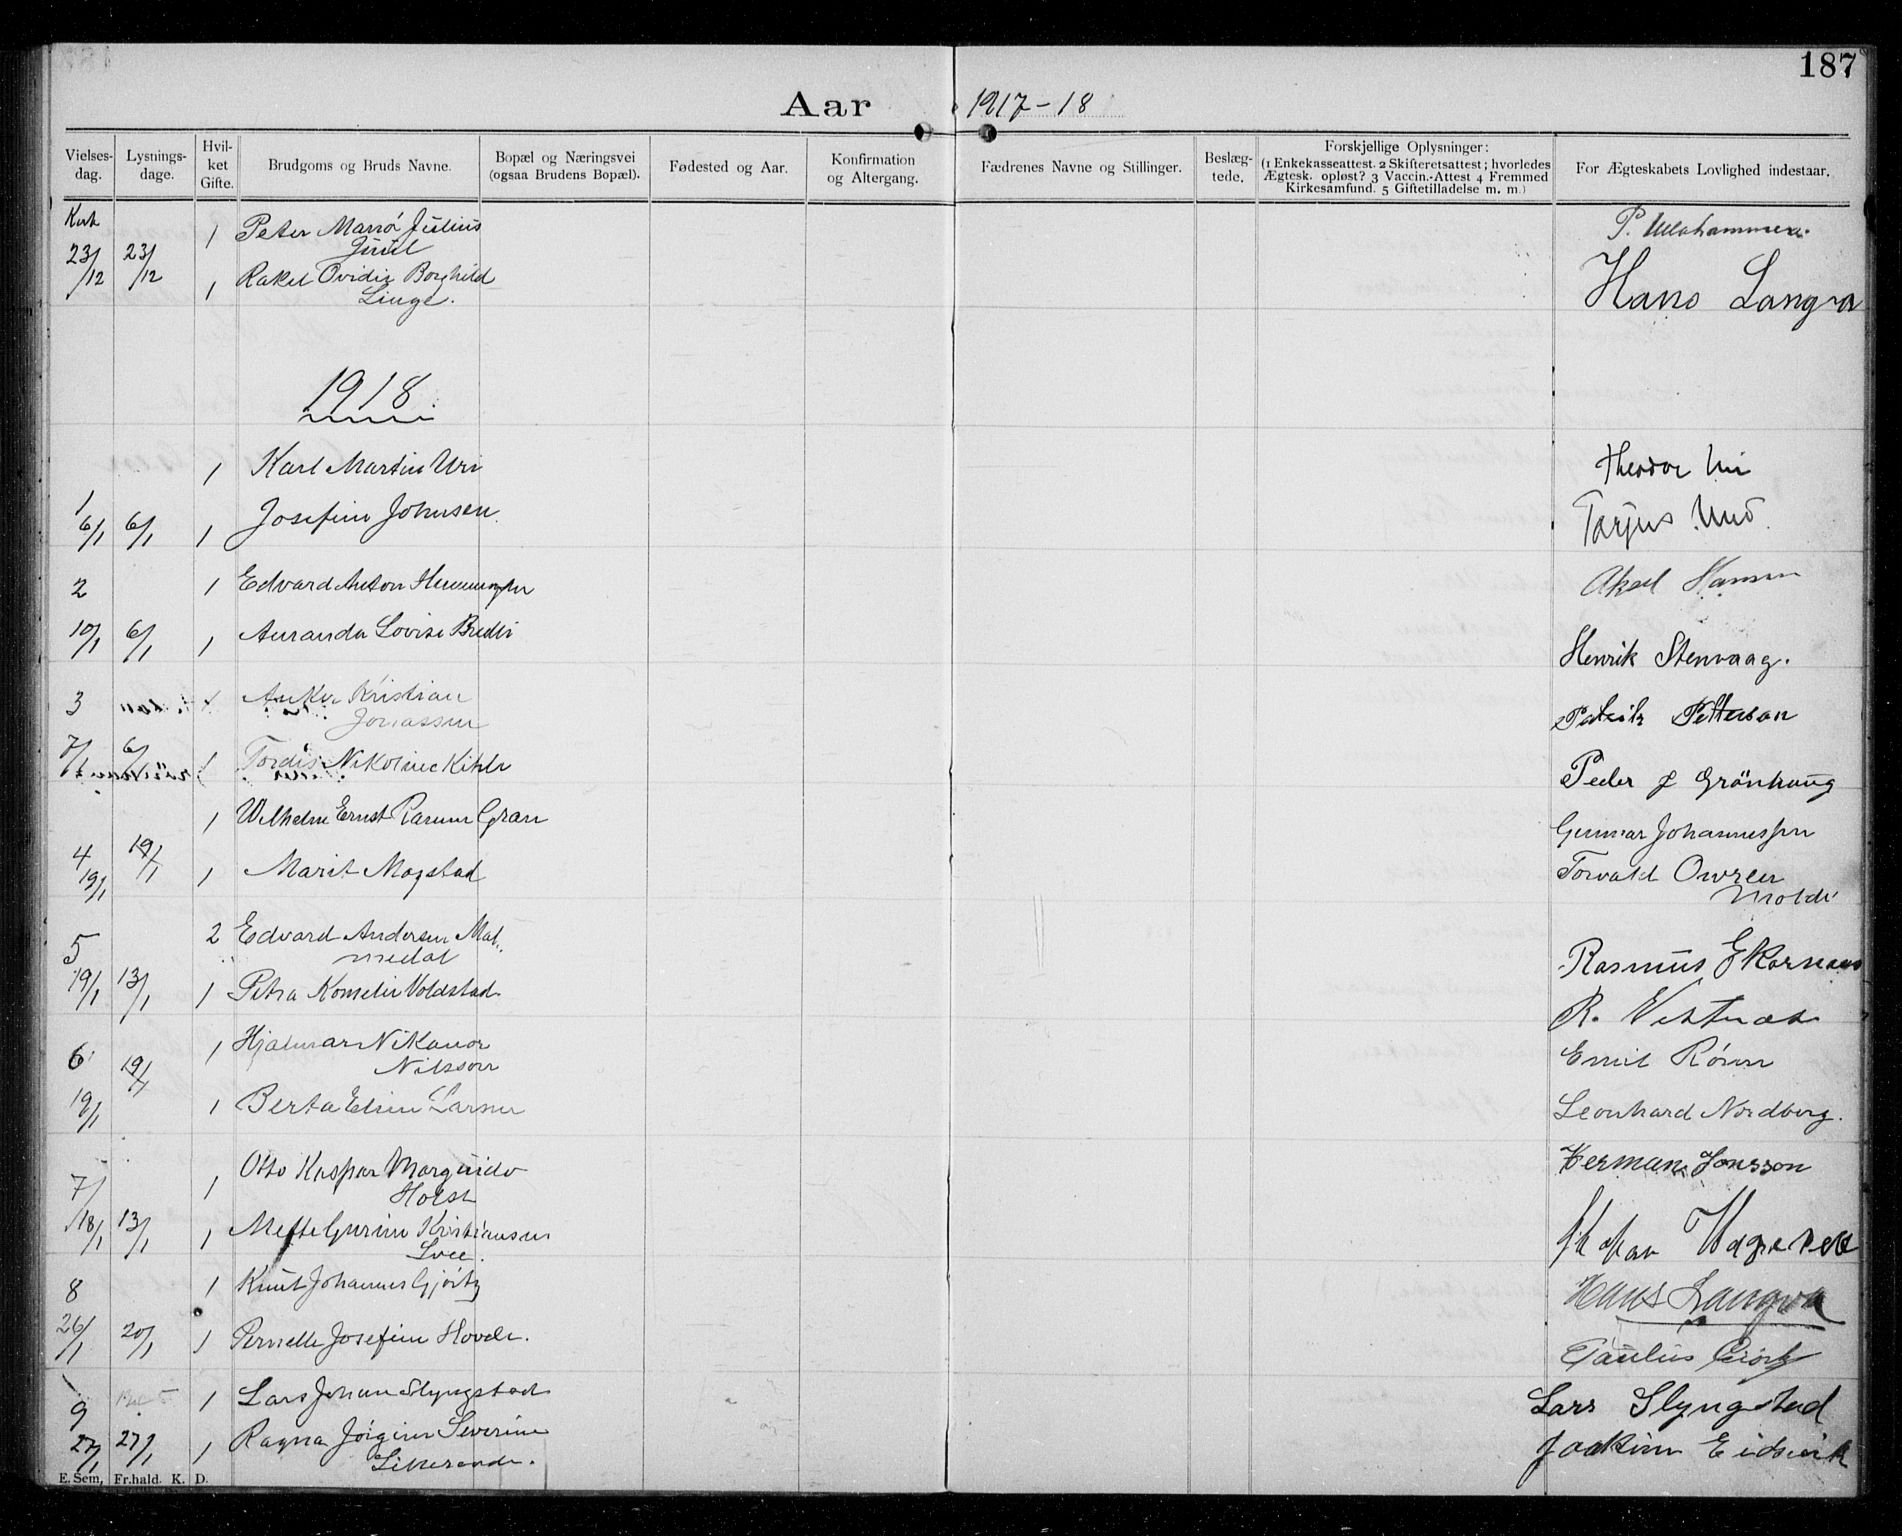 187
Aar 1917-18
Vielses-dag. Lysnings-dage. Hvil-ket Gifte. Brudgoms og Bruds Navne. Bopæl og Næringsvei (ogsaa Brudens Bopæl). Fødested og Aar. Konfirmation og Altergang. Fædrenes Navne og Stillinger. Beslæg-tede. Forskjellige Oplysninger: (1 Enkekasseattest. 2 Skifteretsattest; hvorledes Ægtesk. opløst? 3 Vaccin.-Attest 4 Fremmed Kirkesamfund. 5 Giftetilladelse m. m.) For Ægteskabets Lovlighed indestaar.
1 Peter Julius
23/12 23/12 Juul
1 Rakel Borghild
Linge.
Hans Langva
1918
1 Karl Martin Uri Theodor Uri
1
6/1 6/1 1 Josefine Johnsen Tarjus
2 1 Edvard Anton Aksel Hansen
10/1 6/1 1 Lovise Henrik Stenvaag.
3 Anker Kristian
Jonassen Petterson
7/1 6/1 1 Tordis Nikoline Peder J Grönhaug
1 Wilhelm Ernst Gran Gunnar Johannessen
4 19/1
19/1 1 Marit Magstad Torvald Owren
Molde
5 2 Edvard Andersen Mal-
medal Rasmus Ekornaas
19/1 13/1 1 Petra Voldstad R. Vestnæs
6 19/1 1 Hjalmar Nikanor
Nilsson Emil
19/1 1 Berta Larsen Leonhard Nordberg.
7 1 Otto Kaspar
Holst Herman Jonsson
18/1 13/1 1 Mette Gurine Kristiansen
8 1 Knut Johannes Gjörtz Hans Langva
26/1 20/1 1 Pernelle Josefine Hovde. Paulus
9 1 Lars Johan Slyngstad Lars Slyngstad
27/1 27/1 1 Ragna Severine Joakim Eidsvik
E. Sem, Fr.hald. K. D.